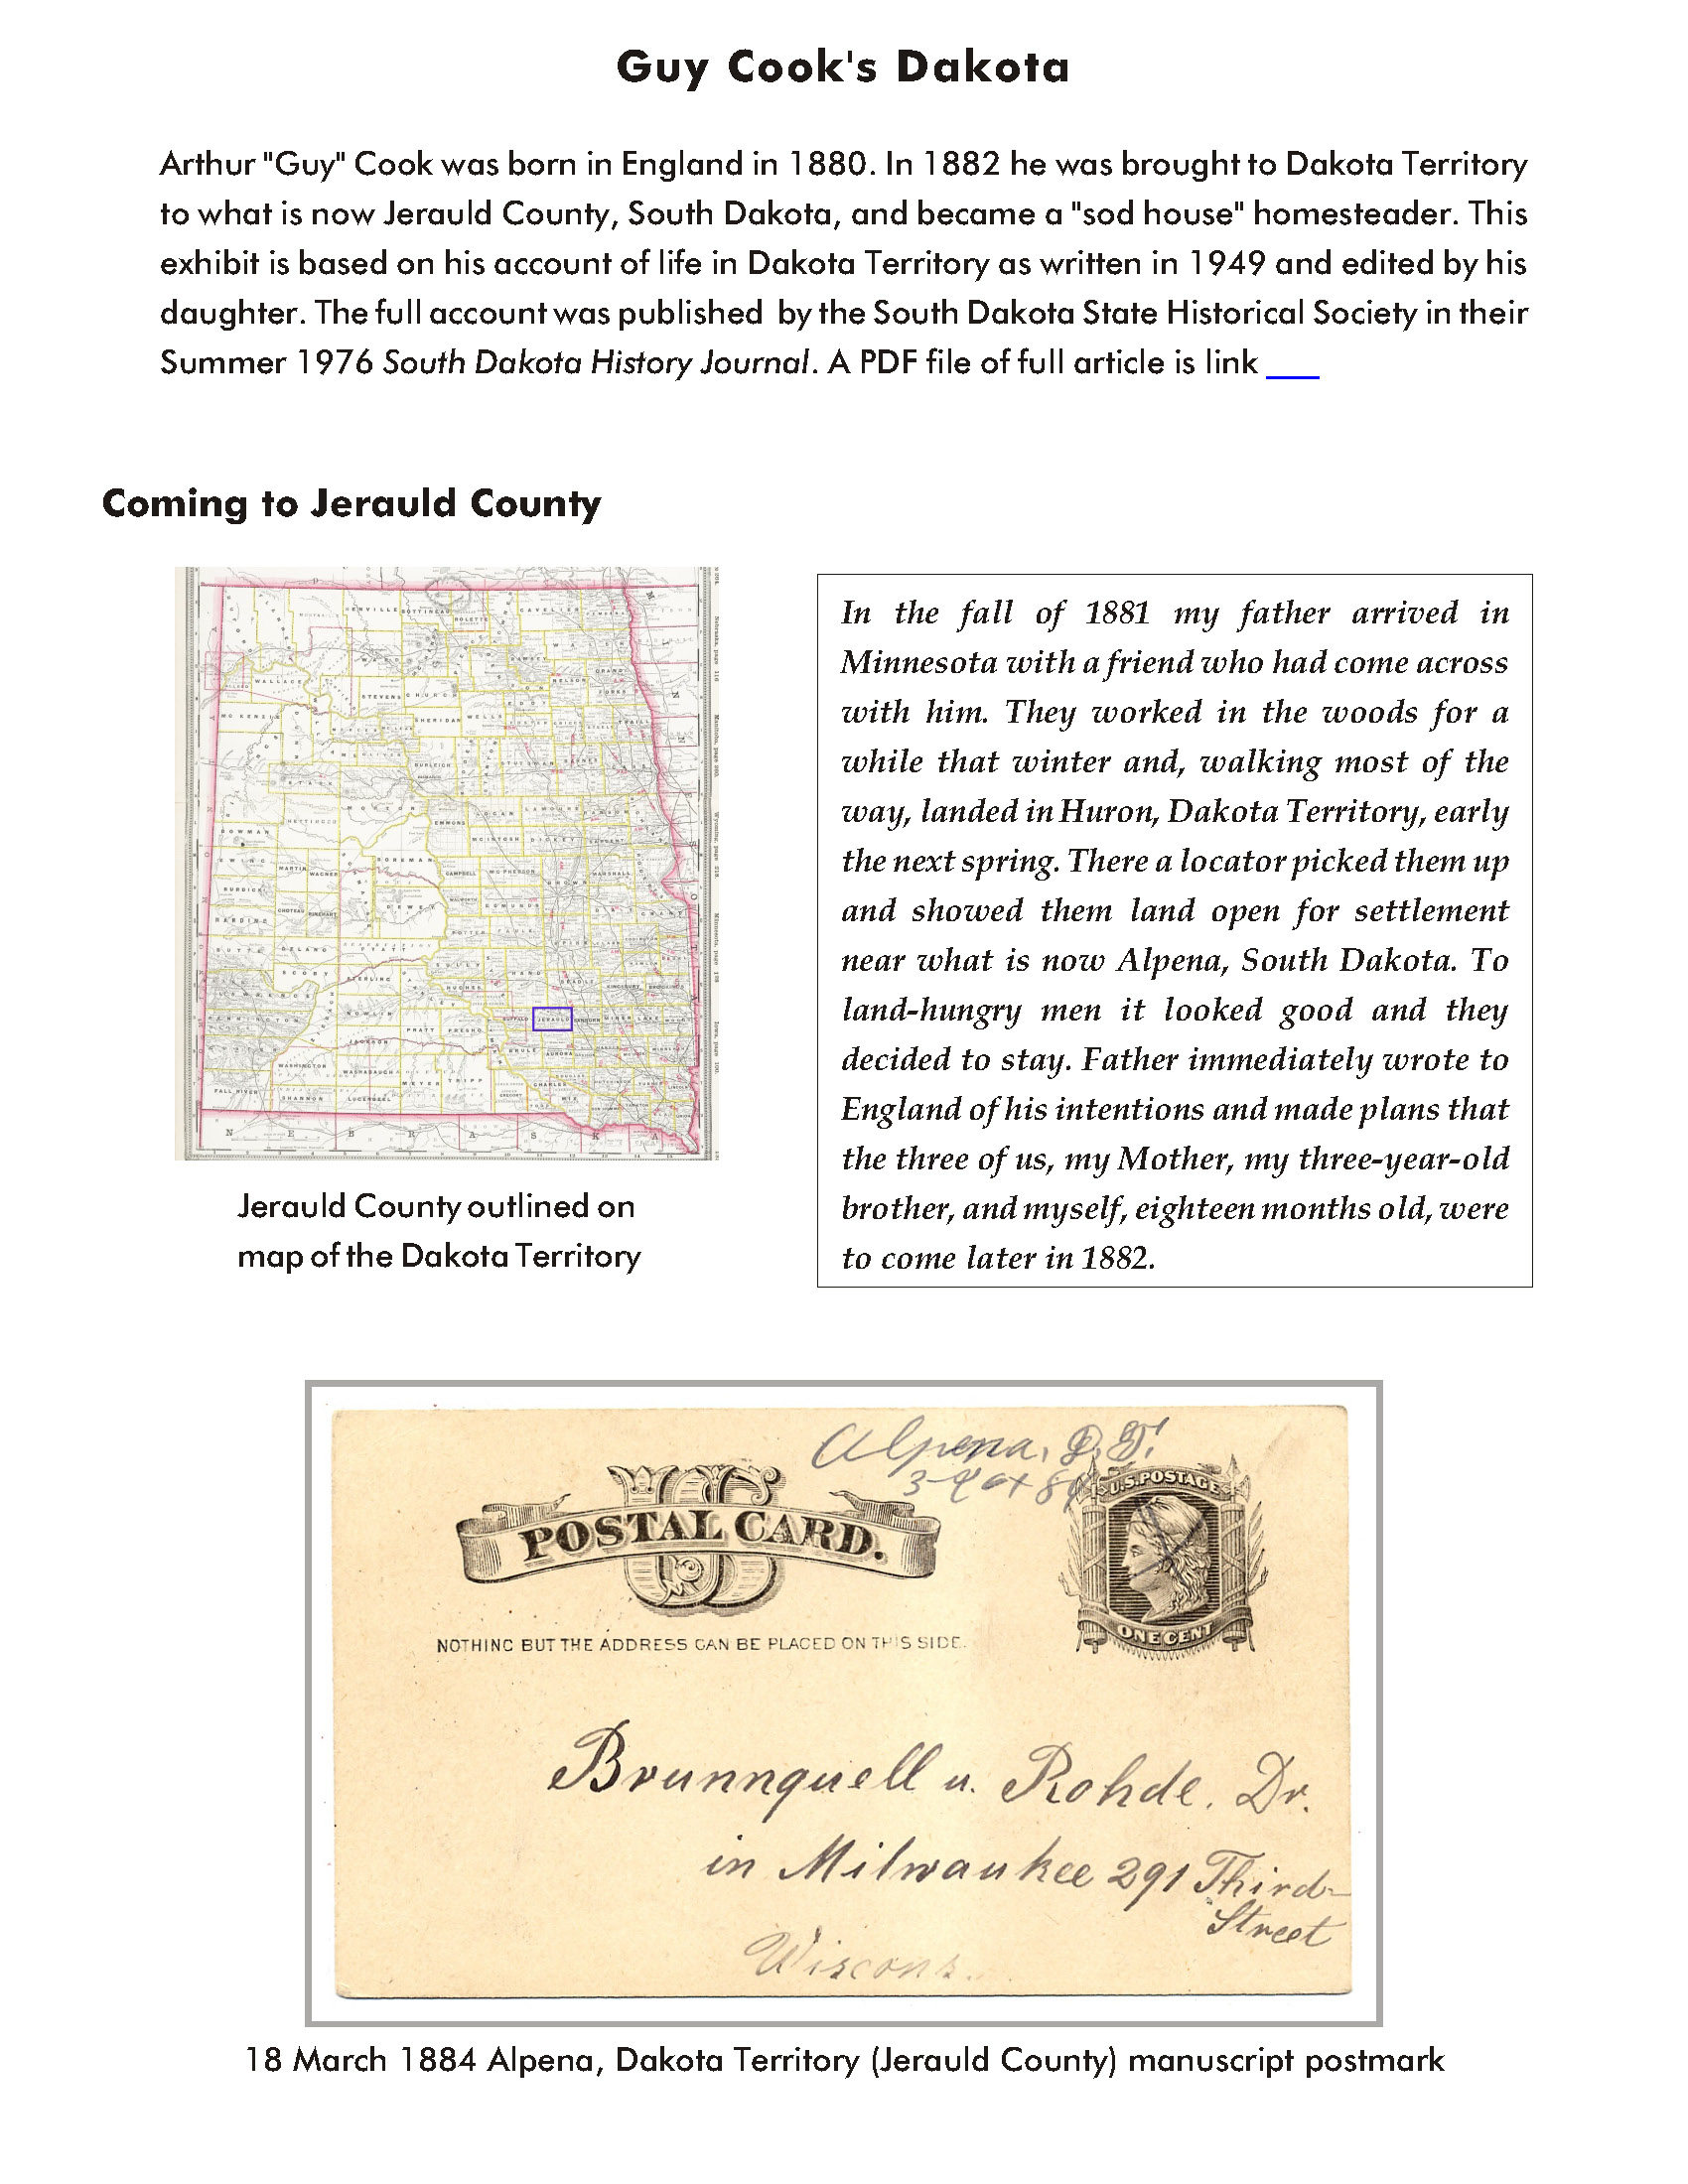 Guy Cook's Dakota
Arthur "Guy" Cook was born in England in 1880. In 1882 he was brought to Dakota Territory
to what is now Jerauld County, South Dakota, and became a "sod house" homesteader. This
exhibit is based on his account of life in Dakota Territory as written in 1949 and edited by his
daughter. The full account was published by the South Dakota State Historical Society in their
Summer 1976 South Dakota History Journal. A PDF file of full article is link ___
Coming to Jerauld County
In the fall of 1881 my father arrived in
Minnesota with a friend who had come across
with him. They worked in the woods for a
while that winter and, walking most of the
way, landed in Huron, Dakota Territory, early
the next spring. There a locator picked them up
and showed them land open for settlement
near what is now Alpena, South Dakota. To
land-hungry men it looked good and they
decided to stay. Father immediately wrote to
England of his intentions and made plans that
the three of us, my Mother, my three-year-old
brother, and myself, eighteen months old, were
to come later in 1882.
WALLACE
STEVENS
SHERIDAN
WELLS
BURLEIGH
EMMONS
BOWMAN
MARTIN
WAGNER
CAMPBELL
HUGHES
JERAULD
PRATT
PRESHO
BRULE
AURORA
WASHINGTON
MEYER
TRIPP
FALL RIVER
SHANNON
NEBRASKA
Jerauld County outlined on
map of the Dakota Territory
Alpena, D.T.
U.S. POSTAGE
US
POSTAL CARD.
ONE CENT
NOTHING BUT THE ADDRESS CAN BE PLACED ON THIS SIDE.
Brunnquell u. Rohde. Dr.
in Milwaukee 291 Third-
Street
Wiscons.
18 March 1884 Alpena, Dakota Territory (Jerauld County) manuscript postmark